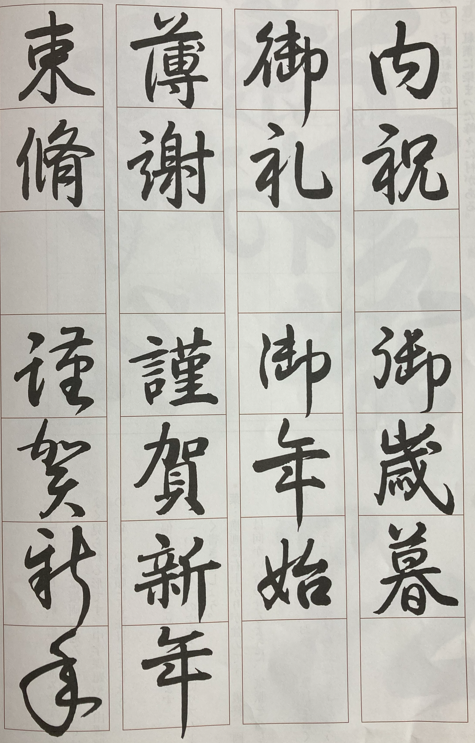 内祝
御歳暮
御礼
御年始
薄謝
謹賀新年
束脩
謹賀新年